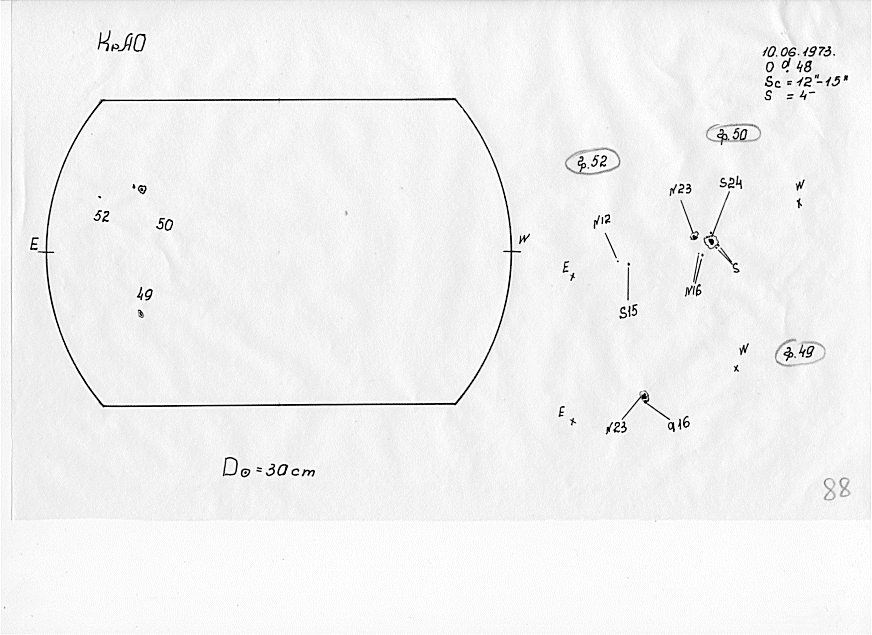 КрАО
10.06.1973.
0 d. 48
Sc = 12"-15"
S = 4-
гр.50
гр.52
N23
S24
W
N12
52
50
E
W
E
S
49
N16
S15
W
гр.49
E
N23
q16
D⊙ = 30 cm
88